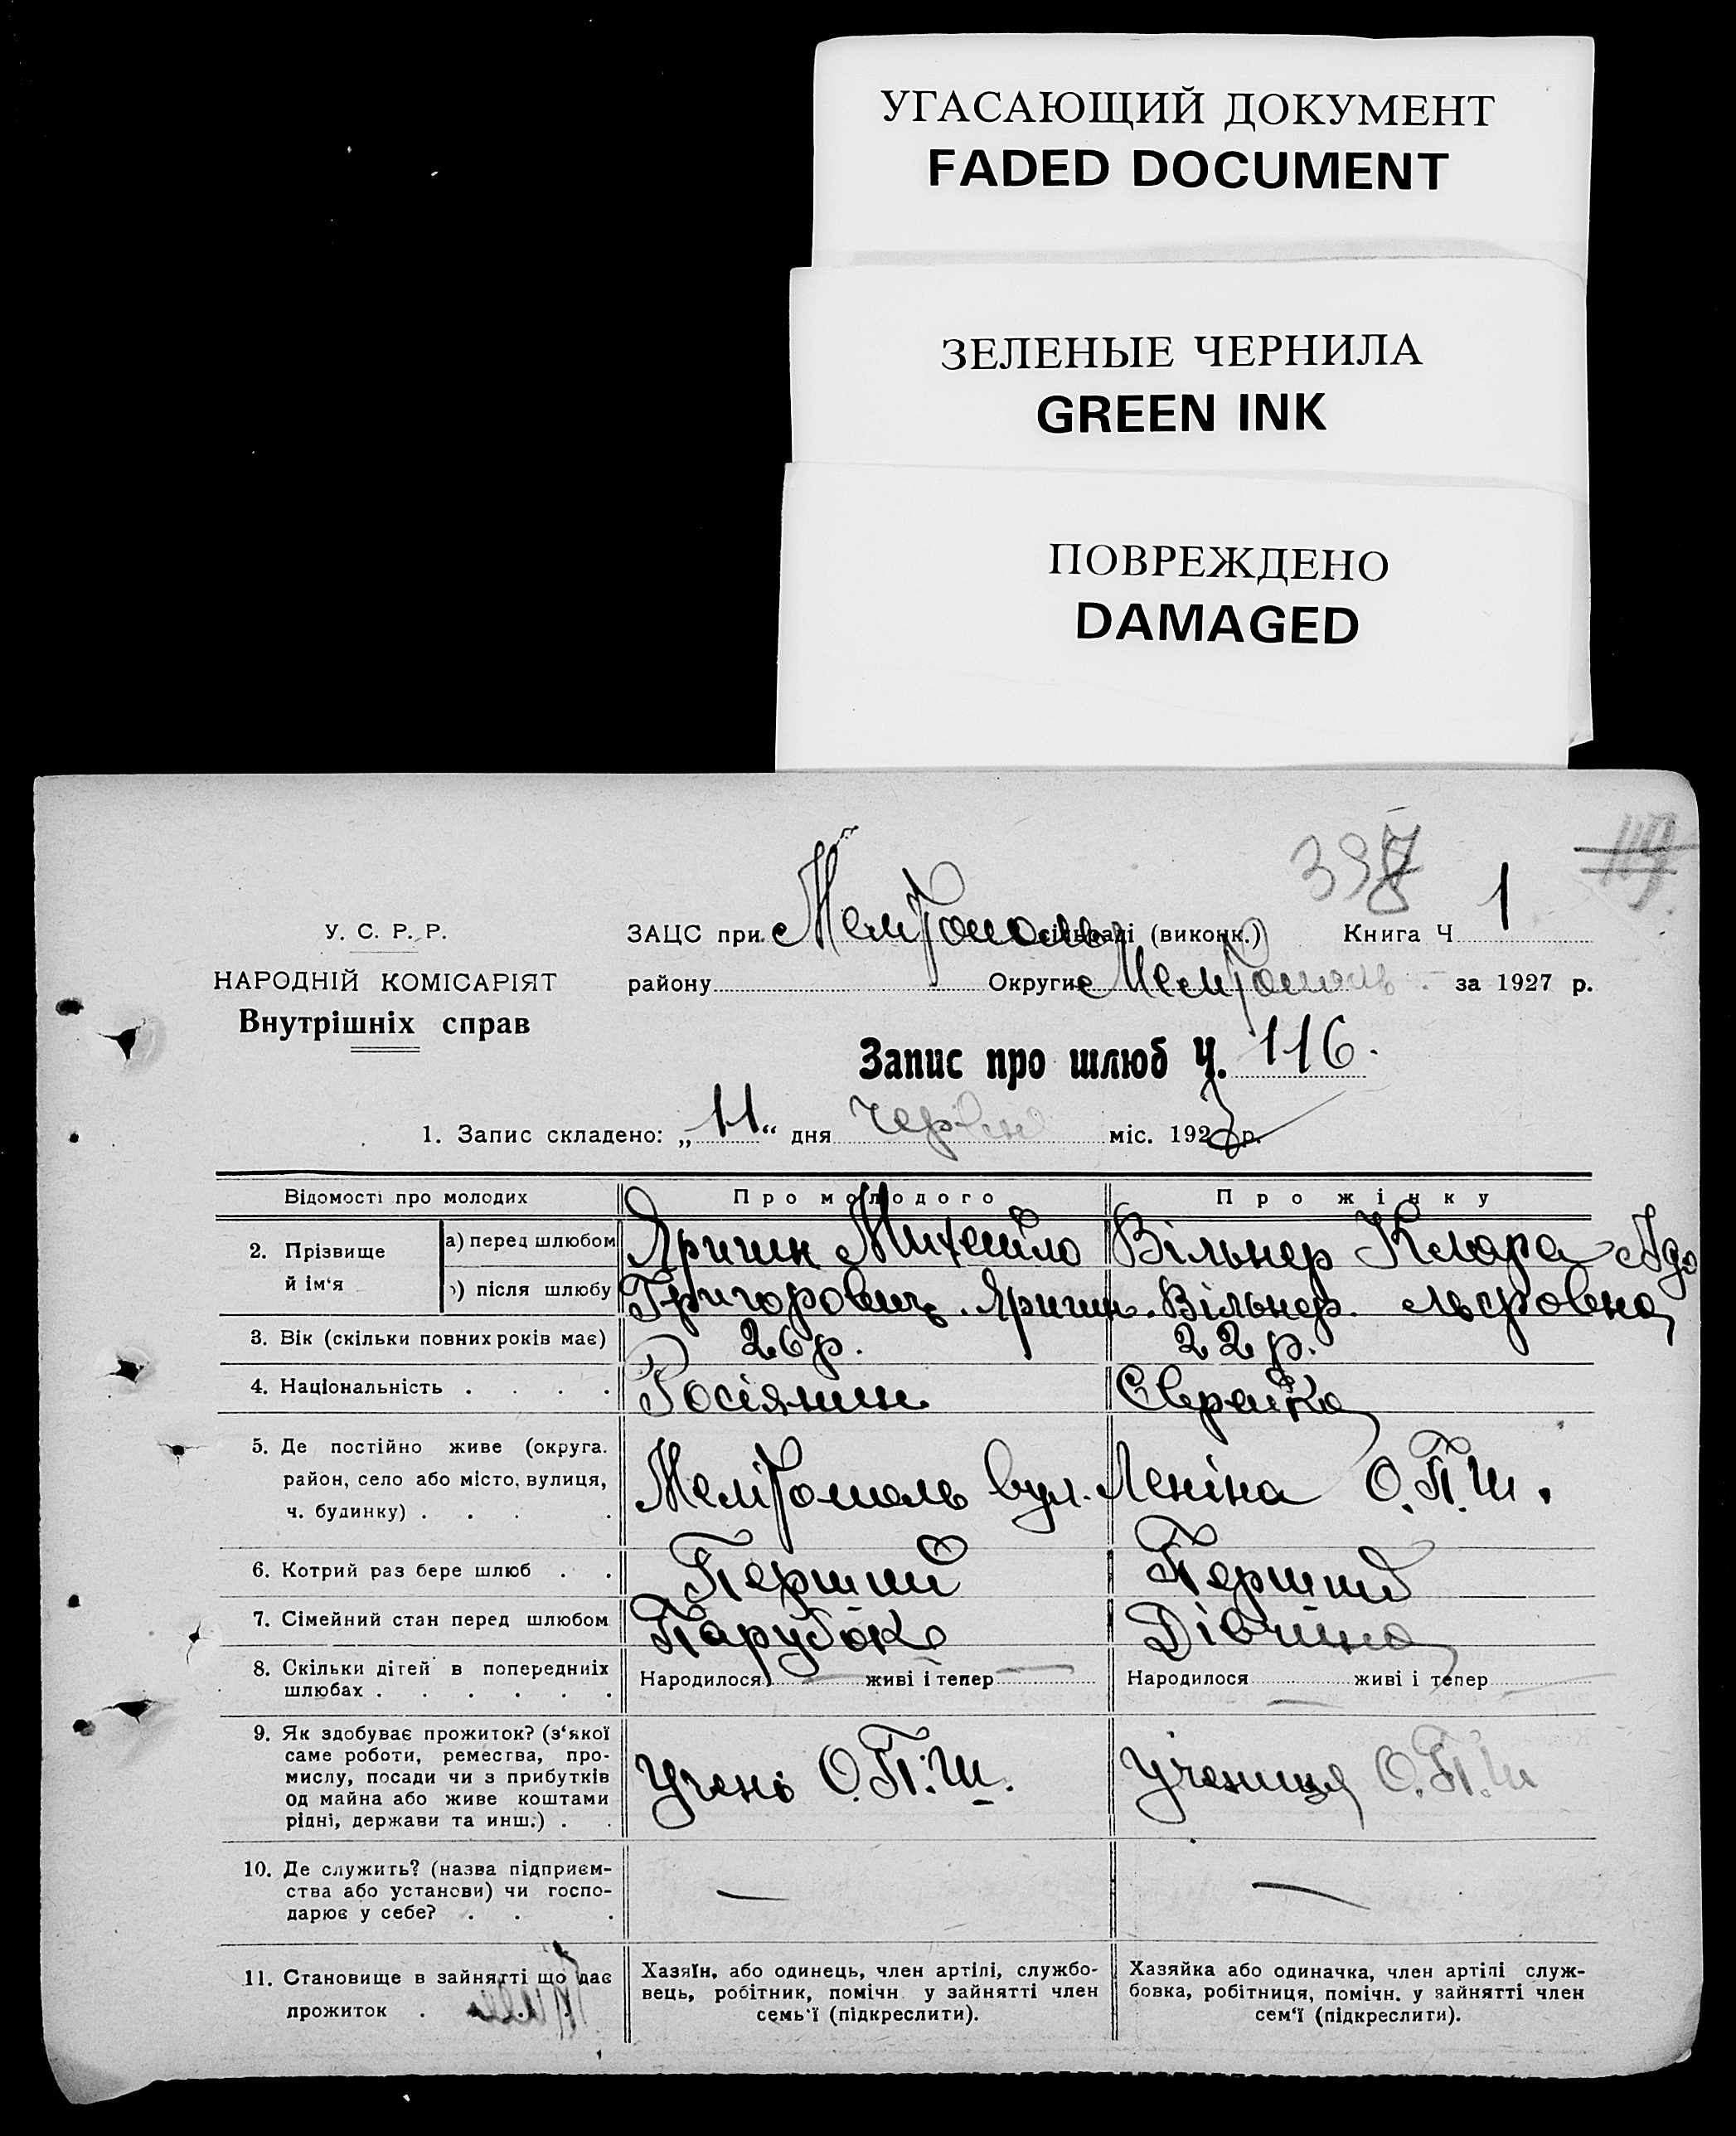 УГАСАЮЩИЙ ДОКУМЕНТ
FADED DOCUMENT
ЗЕЛЕНЫЕ ЧЕРНИЛА
GREEN INK
ПОВРЕЖДЕНО
DAMAGED
398 119
У. С. Р. Р.
НАРОДНІЙ КОМІСАРІЯТ
Внутрішніх справ
ЗАЦС при Мелітополь сільраді (виконк.) Книга Ч 1
району Округи Мелітополь за 1927 р.
Запис про шлюб Ч. 116.
1. Запис складено: „11“ дня Червня міс. 1927 р.
Відомості про молодих Про молодого Про жінку
2. Прізвище й ім‘я
а) перед шлюбом Яригин Михайло Вільнер Клара Адо
б) після шлюбу Григорович. Яригин. Вільнер. льфовна
3. Вік (скільки повних років має) 26 р. 22 р.
4. Національність . . . . Росіянин Єврейка
5. Де постійно живе (округа.
район, село або місто, вулиця,
ч. будинку) . . . . Мелітополь вул. Леніна О.П.Ш.
6. Котрий раз бере шлюб . . Перший Перший
7. Сімейний стан перед шлюбом Парубок Дівчина
8. Скільки дітей в попередніх
шлюбах . . . . . . Народилося — живі і тепер — Народилося — живі і тепер —
9. Як здобуває прожиток? (з‘якої
саме роботи, ремества, про-
мислу, посади чи з прибутків
од майна або живе коштами
рідні, держави та инш.) . . Учень О.П.Ш. Учениця О.П.Ш
10. Де служить? (назва підприєм-
ства або установи) чи госпо-
дарює у себе? . . . — —
11. Становище в зайнятті що дає
прожиток .
Хазяїн, або одинець, член артілі, службо-
вець, робітник, помічн. у зайнятті член
семь‘ї (підкреслити).
Хазяйка або одиначка, член артілі служ-
бовка, робітниця, помічн. у зайнятті член
сем‘ї (підкреслити).